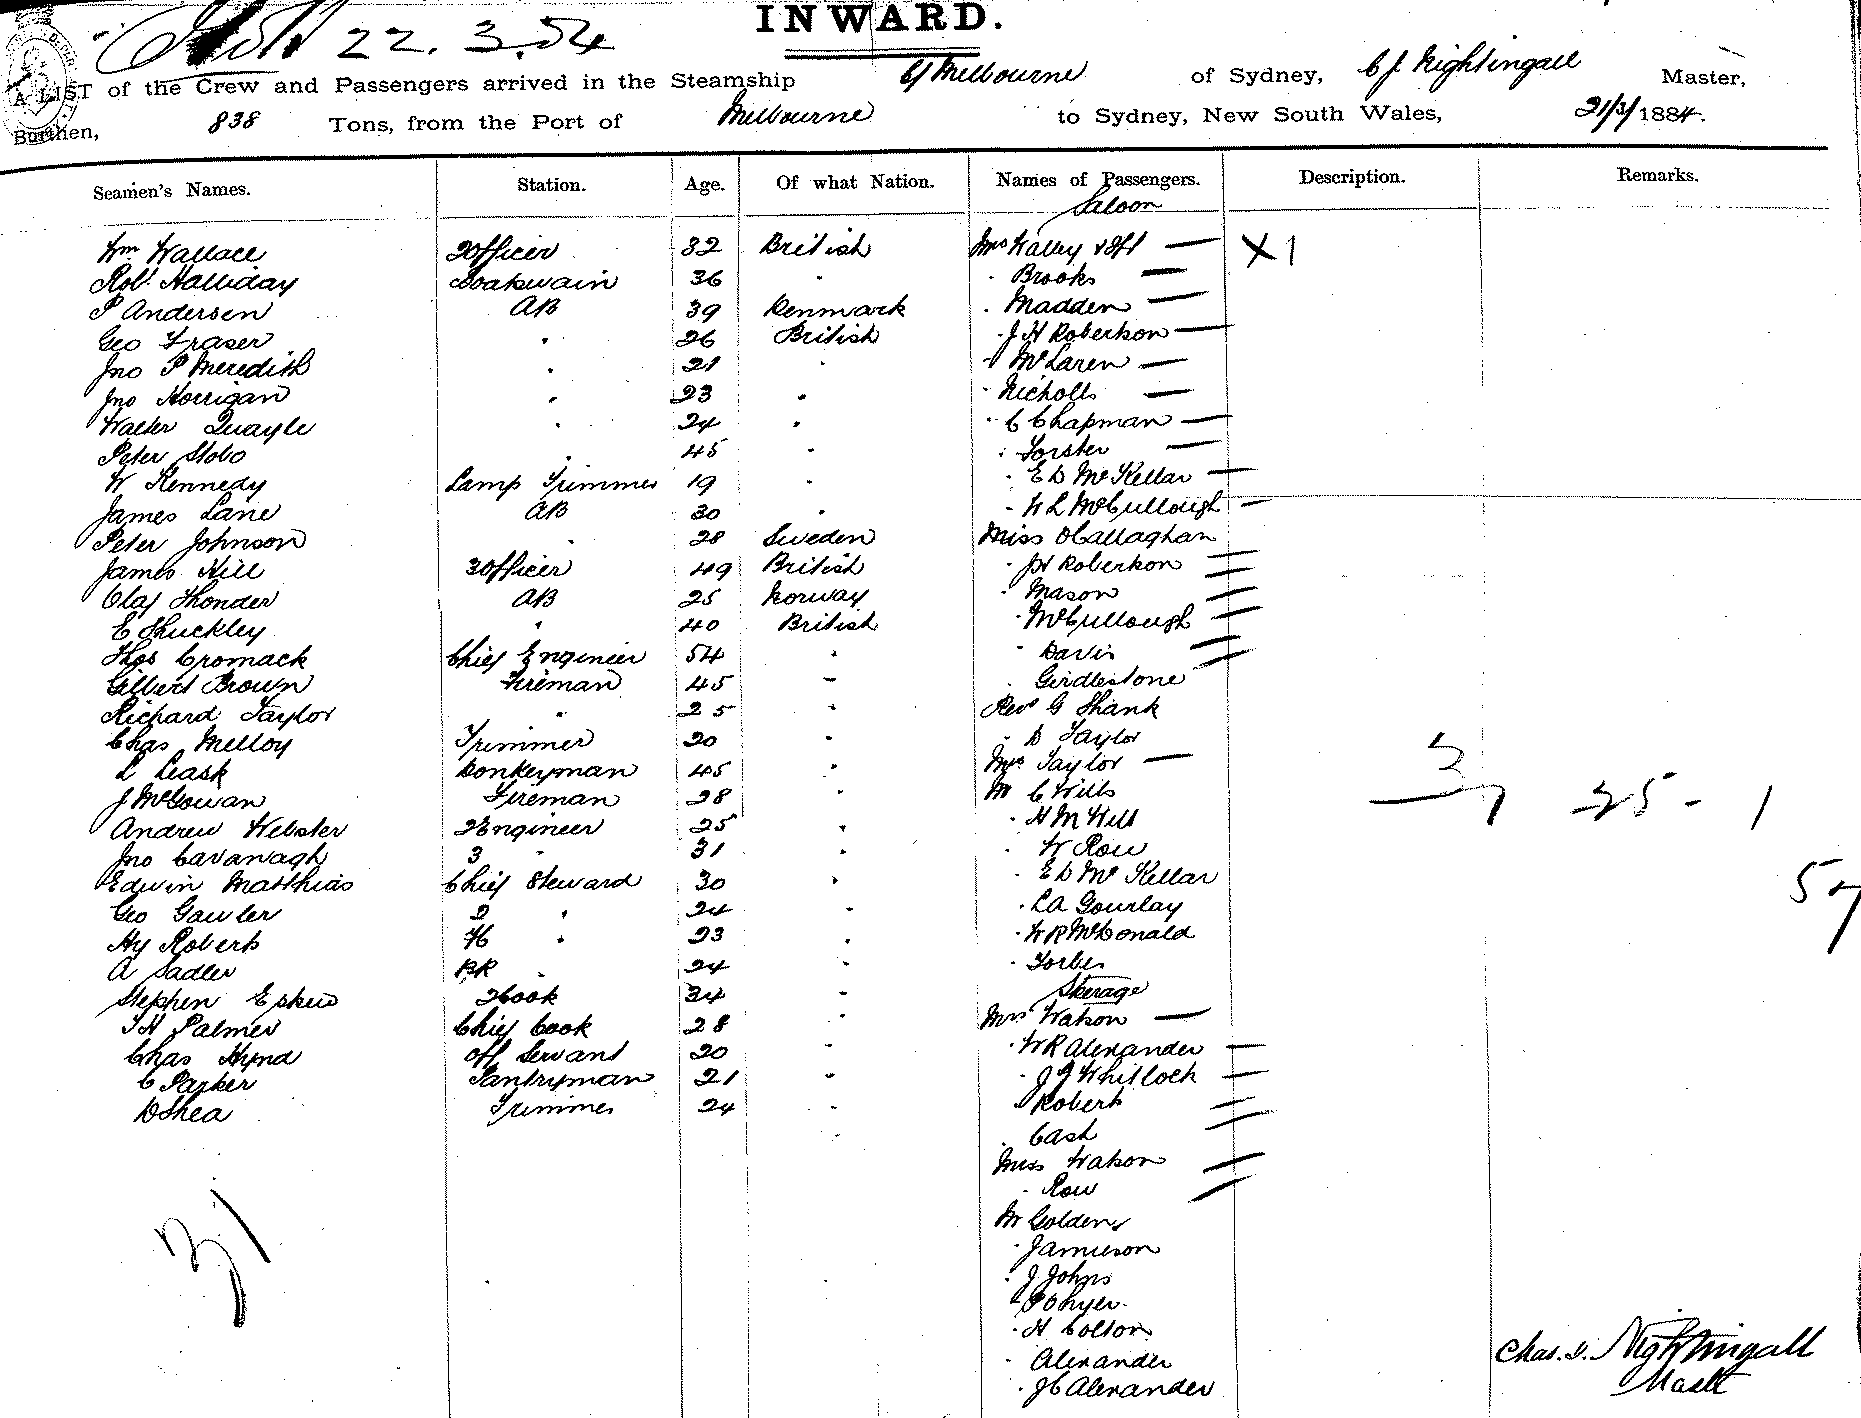 INWARD.
22.3.84
A LIST of the Crew and Passengers arrived in the Steamship Cy Melbourne of Sydney, C J. Nightingall Master,
Burthen, 838 Tons, from the Port of Melbourne to Sydney, New South Wales, 21/3/1884.
Seamen's Names. Station. Age. Of what Nation. Names of Passengers. Description. Remarks.
Saloon
Wm Wallace 2Officer 32 British Mrs Walley & Inft — X 1
Robt Halliday Boatswain 36 " " Brooks —
P Andersen AB 39 Denmark " Madden —
Geo Fraser " 26 British " J H Robertson —
Jno P Meredith " 21 " " McLaren —
Jno Horrigan " 23 " " Nicholls —
Walter Quayle " 24 " " C Chapman —
Peter Stobo " 45 " " Forster —
W Kennedy Lamp Trimmer 19 " " E D McKellar —
James Lane AB 30 " " W L McCullough —
Peter Johnson " 28 Sweden Miss OCallaghan
James Hill 3Officer 49 British " JH Robertson —
Olaf Thonder AB 25 Norway " Mason —
E Shuckley " 40 British " McCullough —
Thos Cromack Chief Engineer 54 " " Davis —
Gilbert Brown Fireman 45 " " Girdlestone —
Richard Taylor " 25 " Revd G Shank
Chas Melloy Trimmer 20 " " D Taylor
L Leask Donkeyman 45 " Mrs Taylor —
J McGowan Fireman 28 " Mr C Wills
Andrew Webster 2Engineer 25 " " H M Will
Jno Cavanagh 3 " 31 " " W Row
Edwin Matthias Chief Steward 30 " " E D McKellar
Geo Gawler 2 " 24 " " LA Gourlay
Hy Roberts " 23 " " W R McDonald
A Sadler " 24 " " Forbes
Stephen Eskew 2Cook 34 " Steerage
T H Palmer Chief Cook 28 " Mrs Watson —
Chas Hynd Off Servant 20 " " W R Alexander —
C Parker Pantryman 21 " " J J Whitlock —
D Shea Trimmer 24 " " Roberts —
" Cash —
Miss Watson —
" Row —
Mr Golden
" Jamieson
" J Johns
" H Colton
" Alexander
" J C Alexander
31
Chas. J. Nightingall
Mastr